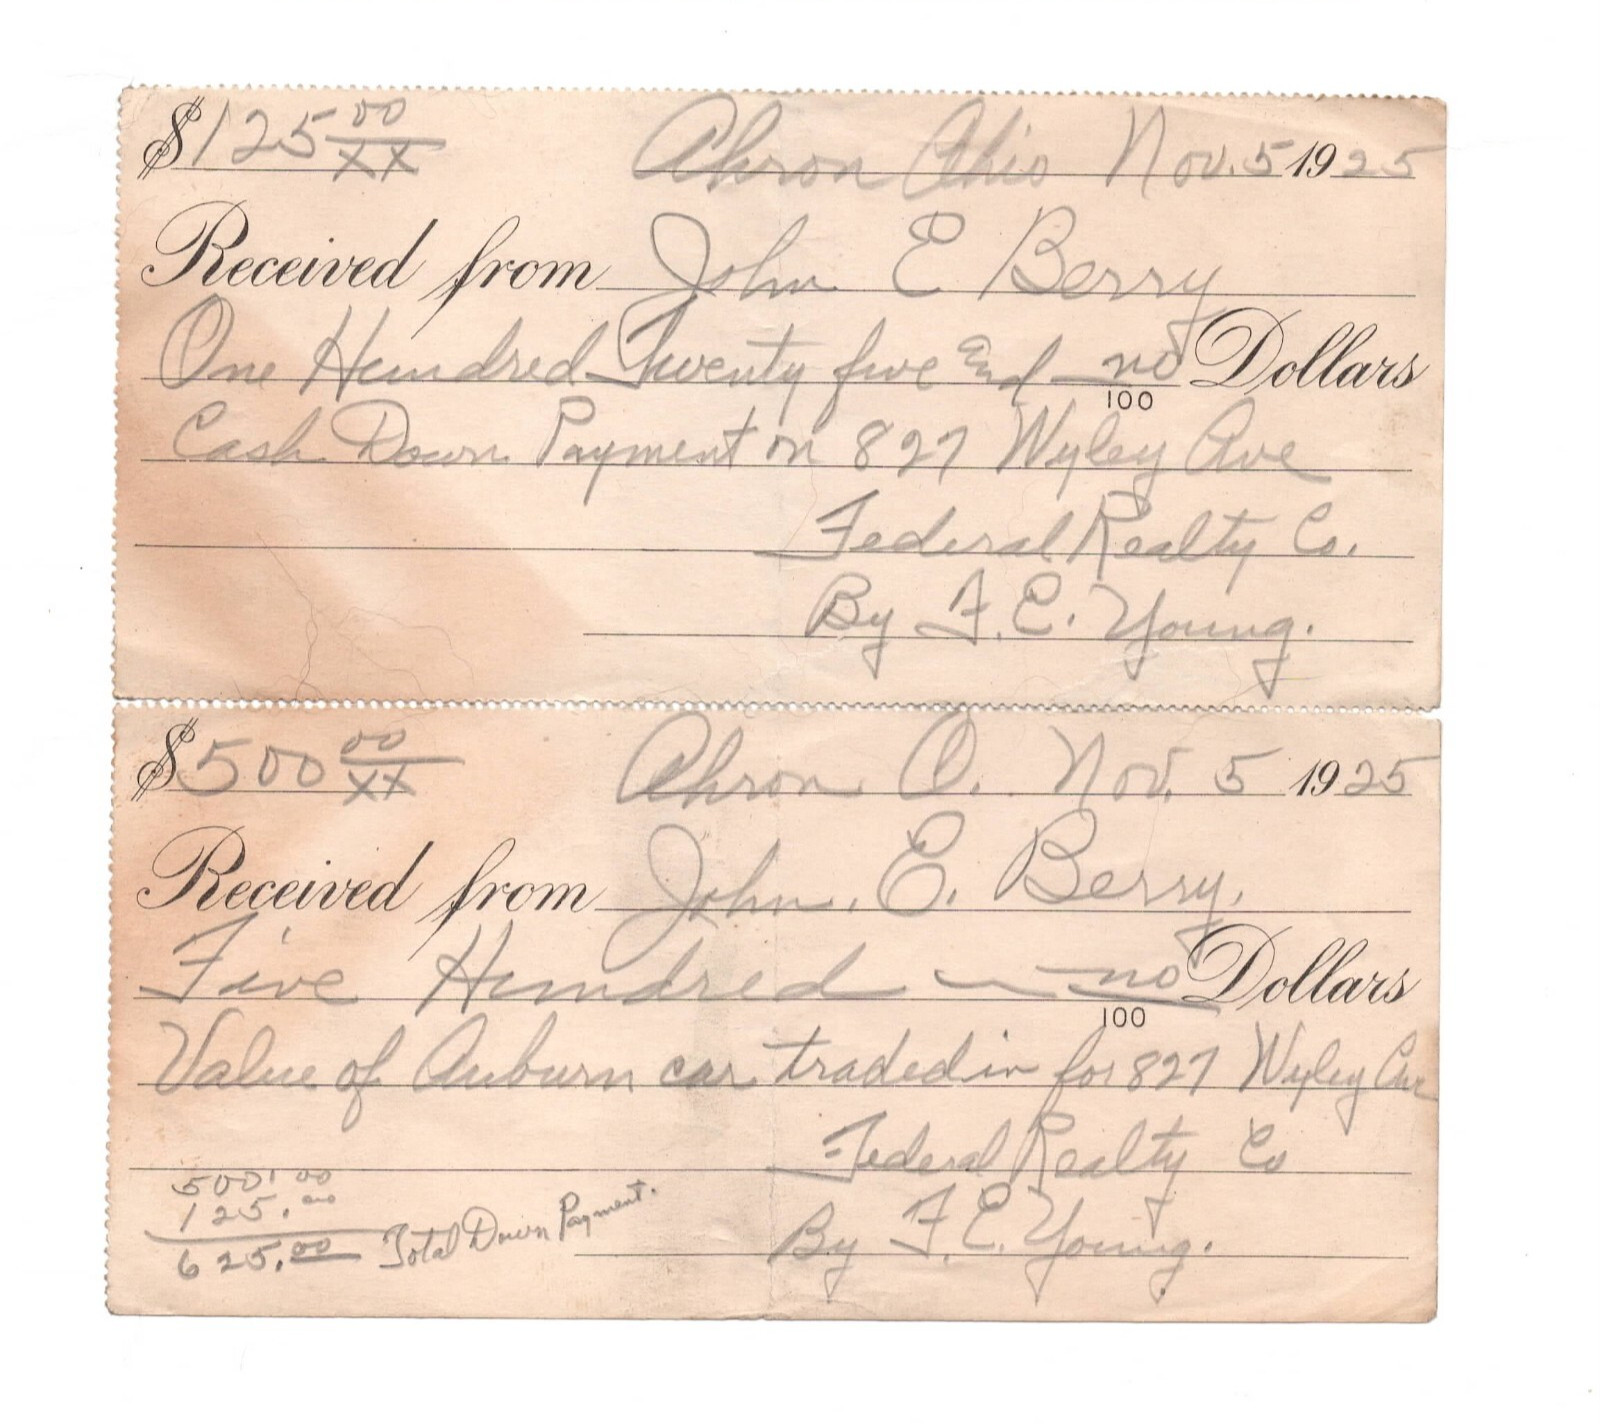 $125 00/XX Akron Ohio Nov. 5 1925
Received from John E Berry
One Hundred Twenty five and no/100 Dollars
Cash Down Payment on 827 Wyley Ave
Federal Realty Co.
By F. E. Young.
$500 00/XX Akron O. Nov. 5 1925
Received from John. E. Berry.
Five Hundred — no/100 Dollars
Value of Auburn car traded in for 827 Wyley Ave
Federal Realty Co
500.00
125.00
625.00 Total Down Payment.
By F. E. Young.